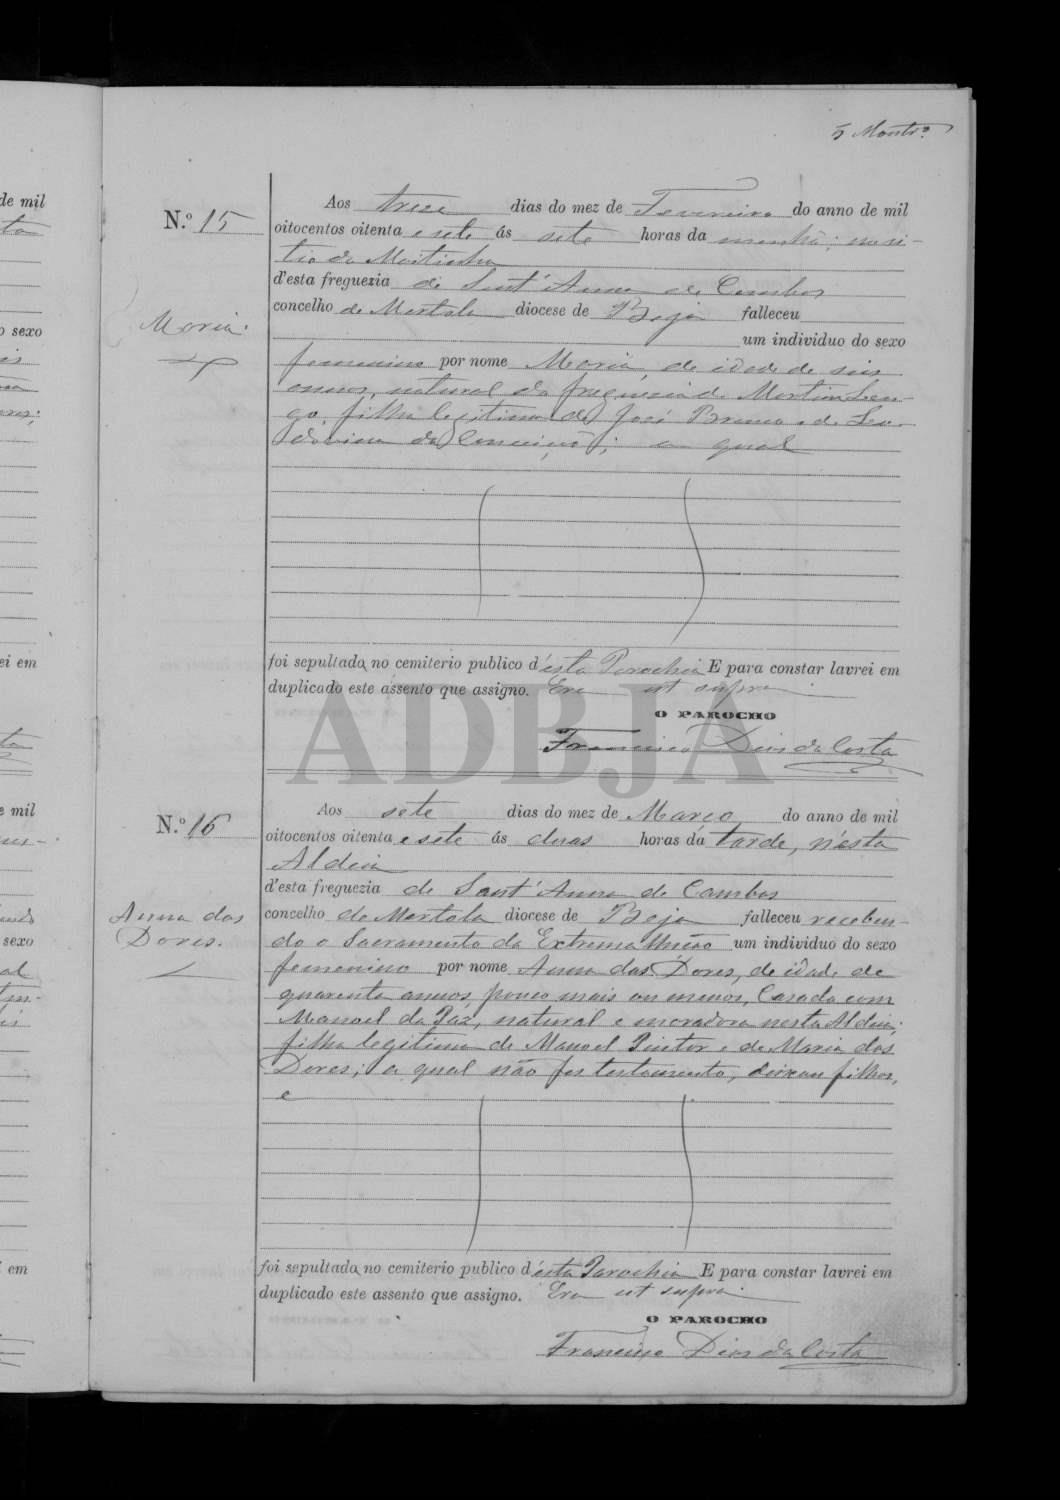 5 Montro
Nº 15
Aos treze dias do mez de Fevereiro do anno de mil
oitocentos oitenta e sete ás sete horas da manhã; no si-
tio da
d'esta freguezia de Sant'Anna de Cambas
concelho de Mertola diocese de Beja falleceu
um individuo do sexo
Maria.
femenino por nome Maria, de idade de seis
annos, natural da freguezia de Martim Lon-
go, filha legitima de José Bruno e de Leo-
da Conceição; a qual
foi sepultada no cemiterio publico d'esta Parochia E para constar lavrei em
duplicado este assento que assigno. Era ut supra
O PAROCHO
Francisco Dias da Costa
ADBJA
Nº 16
Aos sete dias do mez de Março do anno de mil
oitocentos oitenta e sete ás duas horas da tarde, n'esta
Aldeia
d'esta freguezia de Sant'Anna de Cambas
Anna das
Dores.
concelho de Mertola diocese de Beja falleceu receben-
do o Sacramento da Extrema Unção um individuo do sexo
femenino por nome Anna das Dores, de idade de
quarenta annos, pouco mais ou menos, Casada com
Manoel da Paz, natural e moradora nesta Aldeia;
filha legitima de Manoel Pintor e de Maria das
Dores; a qual não fez testamento, deixou filhos,
e
foi sepultada no cemiterio publico d'esta Parochia E para constar lavrei em
duplicado este assento que assigno. Era ut supra.
O PAROCHO
Francisco Dias da Costa
de mil
o sexo
ei em
e mil
sexo
em